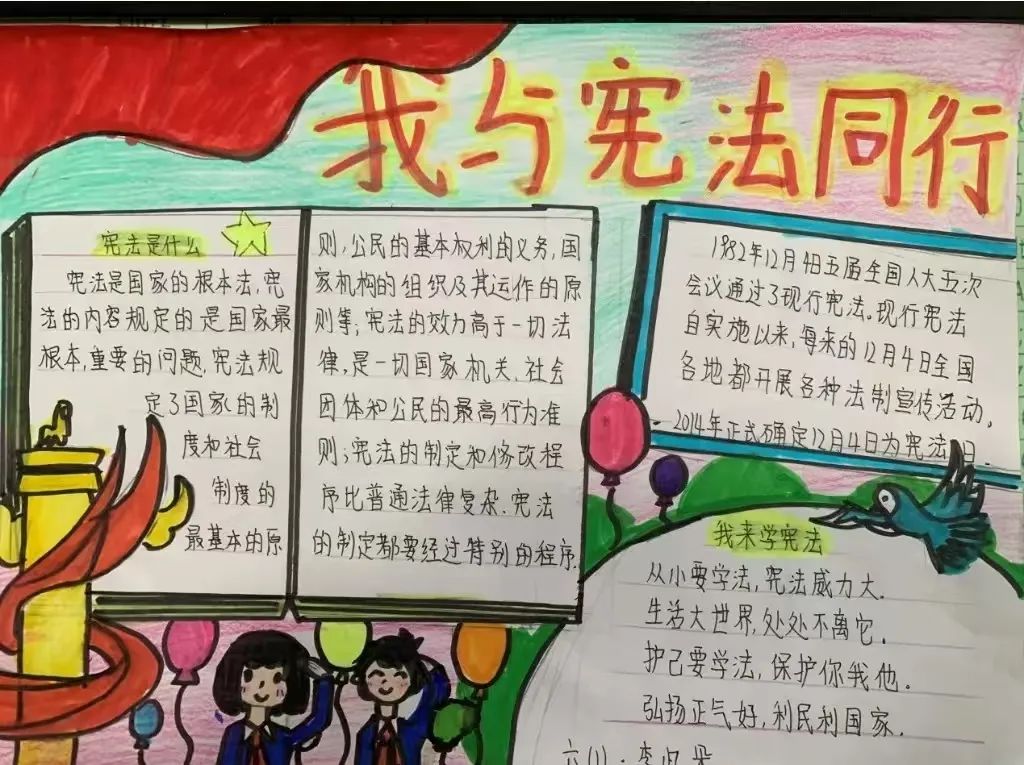 我与宪法同行
宪法是什么
宪法是国家的根本法,宪
法的内容规定的是国家最
根本,重要的问题,宪法规
定了国家的制
度和社会
制度的
最基本的原
则,公民的基本权利的义务,国
家机构的组织及其运作的原
则等;宪法的效力高于一切法
律,是一切国家机关、社会
团体和公民的最高行为准
则;宪法的制定和修改程
序比普通法律复杂.宪法
的制定都要经过特别的程序.
1982年12月4日五届全国人大五次
会议通过了现行宪法.现行宪法
自实施以来,每来的12月4日全国
各地都开展各种法制宣传活动.
2014年正式确定12月4日为宪法日.
我来学宪法
从小要学法,宪法威力大.
生活大世界,处处不离它.
护己要学法,保护你我他.
弘扬正气好,利民利国家.
六(1)·李